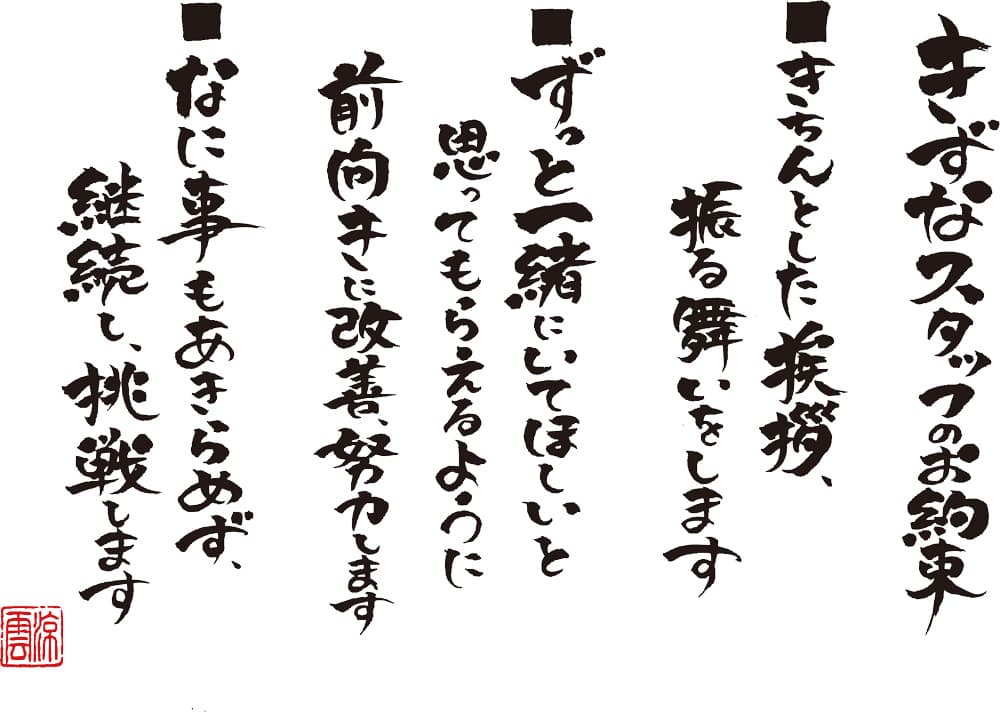 きずなスタッフのお約束
■きちんとした挨拶、
振る舞いをします
■ずっと一緒にいてほしいと
思ってもらえるように
前向きに改善、努力します
■なに事もあきらめず、
継続し、挑戦します
涼雲